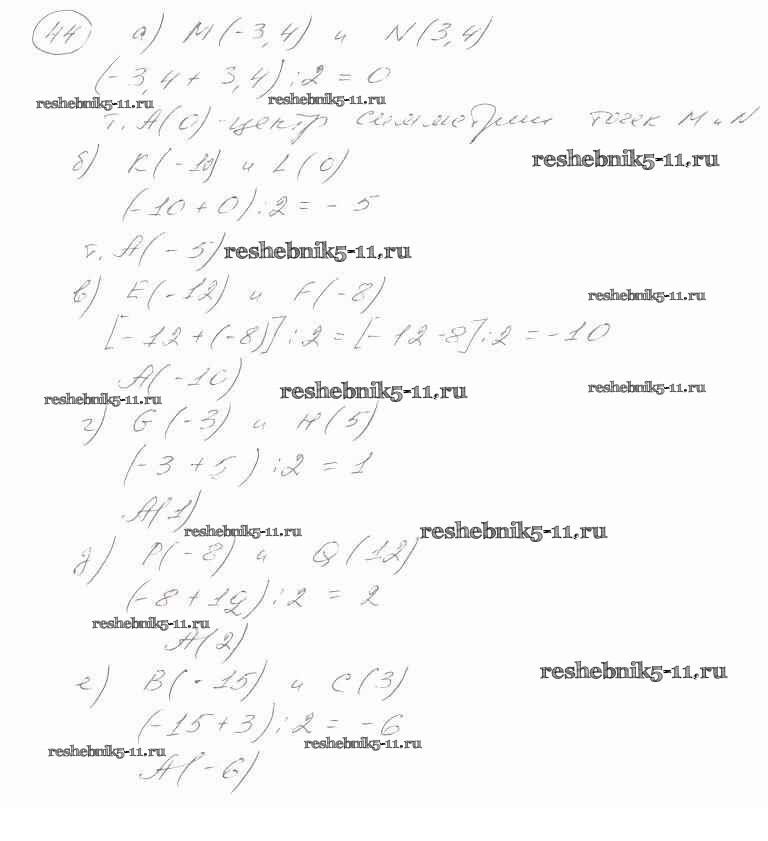 44 а) M(-3,4) и N(3,4)
(-3,4 + 3,4) : 2 = 0
reshebnik5-11.ru reshebnik5-11.ru
т. A(0) - центр симметрии точек M и N
б) K(-10) и L(0) reshebnik5-11.ru
(-10+0) : 2 = -5
т. A(-5) reshebnik5-11.ru
в) E(-12) и F(-8) reshebnik5-11.ru
[-12+(-8)] : 2 = [-12-8] : 2 = -10
A(-10) reshebnik5-11.ru reshebnik5-11.ru
reshebnik5-11.ru
г) G(-3) и H(5)
(-3+5) : 2 = 1
A(1)
reshebnik5-11.ru reshebnik5-11.ru
д) P(-8) и Q(12)
(-8+12) : 2 = 2
reshebnik5-11.ru
A(2)
е) B(-15) и C(3) reshebnik5-11.ru
(-15+3) : 2 = -6
reshebnik5-11.ru reshebnik5-11.ru
A(-6)